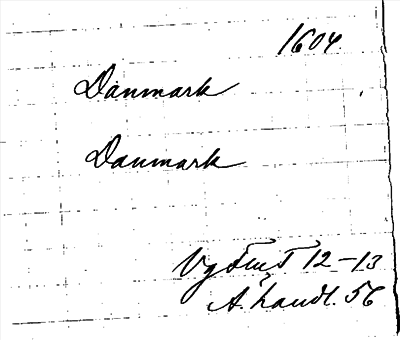 1604.
Danmark
Danmark
12-13
A. handl. 56